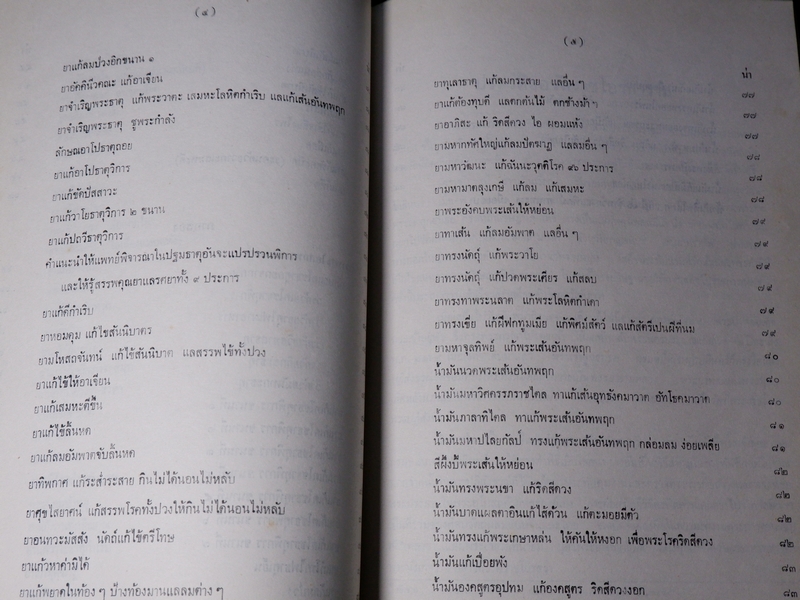 (๔)
ยาแก้ลมปวงอีกขนาน ๑
ยาอัคคินีวคณะ แก้อาเจียน
ยาจำเริญพระธาตุ แก้พระวาตะ เสมหะโลหิตกำเริบ แลแก้เส้นอันทพฤก
ยาจำเริญพระธาตุ ชูพระกำลัง
ลักษณอาโปธาตุถอย
ยาแก้อาโปธาตุวิการ
ยาแก้ขัดปัสสาวะ
ยาแก้วาโยธาตุวิการ ๒ ขนาน
ยาแก้ปถวีธาตุวิการ
คำแนะนำให้แพทย์พิจารณาในปฐมธาตุอันจะแปรปรวนพิการ
และให้รู้สรรพคุณยาแลรศยาทั้ง ๙ ประการ
ยาแก้ดีกำเริบ
ยาหอมดุม แก้ไข้สันนิบาตร
ยามโหสถจันทน์ แก้ไข้สันนิบาต แลสรรพไข้ทั้งปวง
ยาแก้ไข้ให้อาเจียน
ยาแก้เสมหะตีขึ้น
ยาแก้ไข้ลิ้นหด
ยาแก้ลมอัมพาตจับลิ้นหด
ยาทิพกาศ แก้ระส่ำระสาย กินไม่ได้นอนไม่หลับ
ยาศุขไสยาศน์ แก้สรรพโรคทั้งปวงให้กินไม่ได้นอนไม่หลับ
ยาอนทวะมัสสัง นัตถ์แก้ไข้ตรีโทษ
ยาแก้วหาค่ามิได้
ยาแก้พยาดในท้อง ๆ บ้างท้องมานแลลมต่าง ๆ
(๕)
น่า
ยาทุเลาธาตุ แก้ลมกระสาย แลอื่น ๆ ๗๗
ยาแก้ต้องทุบตี แลตกต้นไม้ ตกช้างม้าฯ ๗๗
ยาอาภิสะ แก้ ริดสีดวง ไอ ผอมแห้ง ๗๗
ยามหากทัศใหญ่แก้ลมปัตฆาฏ แลลมอื่น ๆ ๗๘
ยามหาวัฒนะ แก้ฉันนะวุตติโรค ๙๖ ประการ ๗๘
ยามหามาตลุงเกษี แก้ลม แก้เสมหะ ๗๘
ยาพระอังคบพระเส้นให้หย่อน ๗๙
ยาทาเส้น แก้ลมอัมพาต แลอื่น ๆ ๗๙
ยาทรงนัตถุ์ แก้พระวาโย ๗๙
ยาทรงนัตถุ์ แก้ปวดพระเศียร แก้สลบ ๗๙
ยาทรงทาพระนลาต แก้พระโลหิตกำเดา ๗๙
ยาทรงเขี่ย แก้ฝีฟกทูมเมีย แก้พิศม์สัตว์ แลแก้สัตรีเปนฝีที่นม ๗๙
ยามหาจุลทิพย์ แก้พระเส้นอันทพฤก ๘๐
น้ำมันนวดพระเส้นอันทพฤก ๘๐
น้ำมันมหาวิศครรภราชไตล ทาแก้เส้นอุทธังคมาวาต อัทโธคมาวาต ๘๐
น้ำมันภาลาทิไตล ทาแก้พระเส้นอันทพฤก ๘๑
น้ำมันมหาปไลยกัลป์ ทรงแก้พระเส้นอันทพฤก กล่อมลม ง่อยเพลีย ๘๑
สีผึ้งบี้พระเส้นให้หย่อน ๘๒
น้ำมันทรงพระนขา แก้ริดสีดวง ๘๒
น้ำมันบาดแผลดาอินแก้ไส้ด้วน แก้ตะมอยมีตัว ๘๒
น้ำมันทรงแก้พระเกษาหล่น ให้คันให้หงอก เพื่อพระโรคริดสีดวง ๘๒
น้ำมันแก้เปื่อยพัง ๘๓
น้ำมันองคสูตรอุปทม แก้องคสูตร ริดสีดวงงอก ๘๓